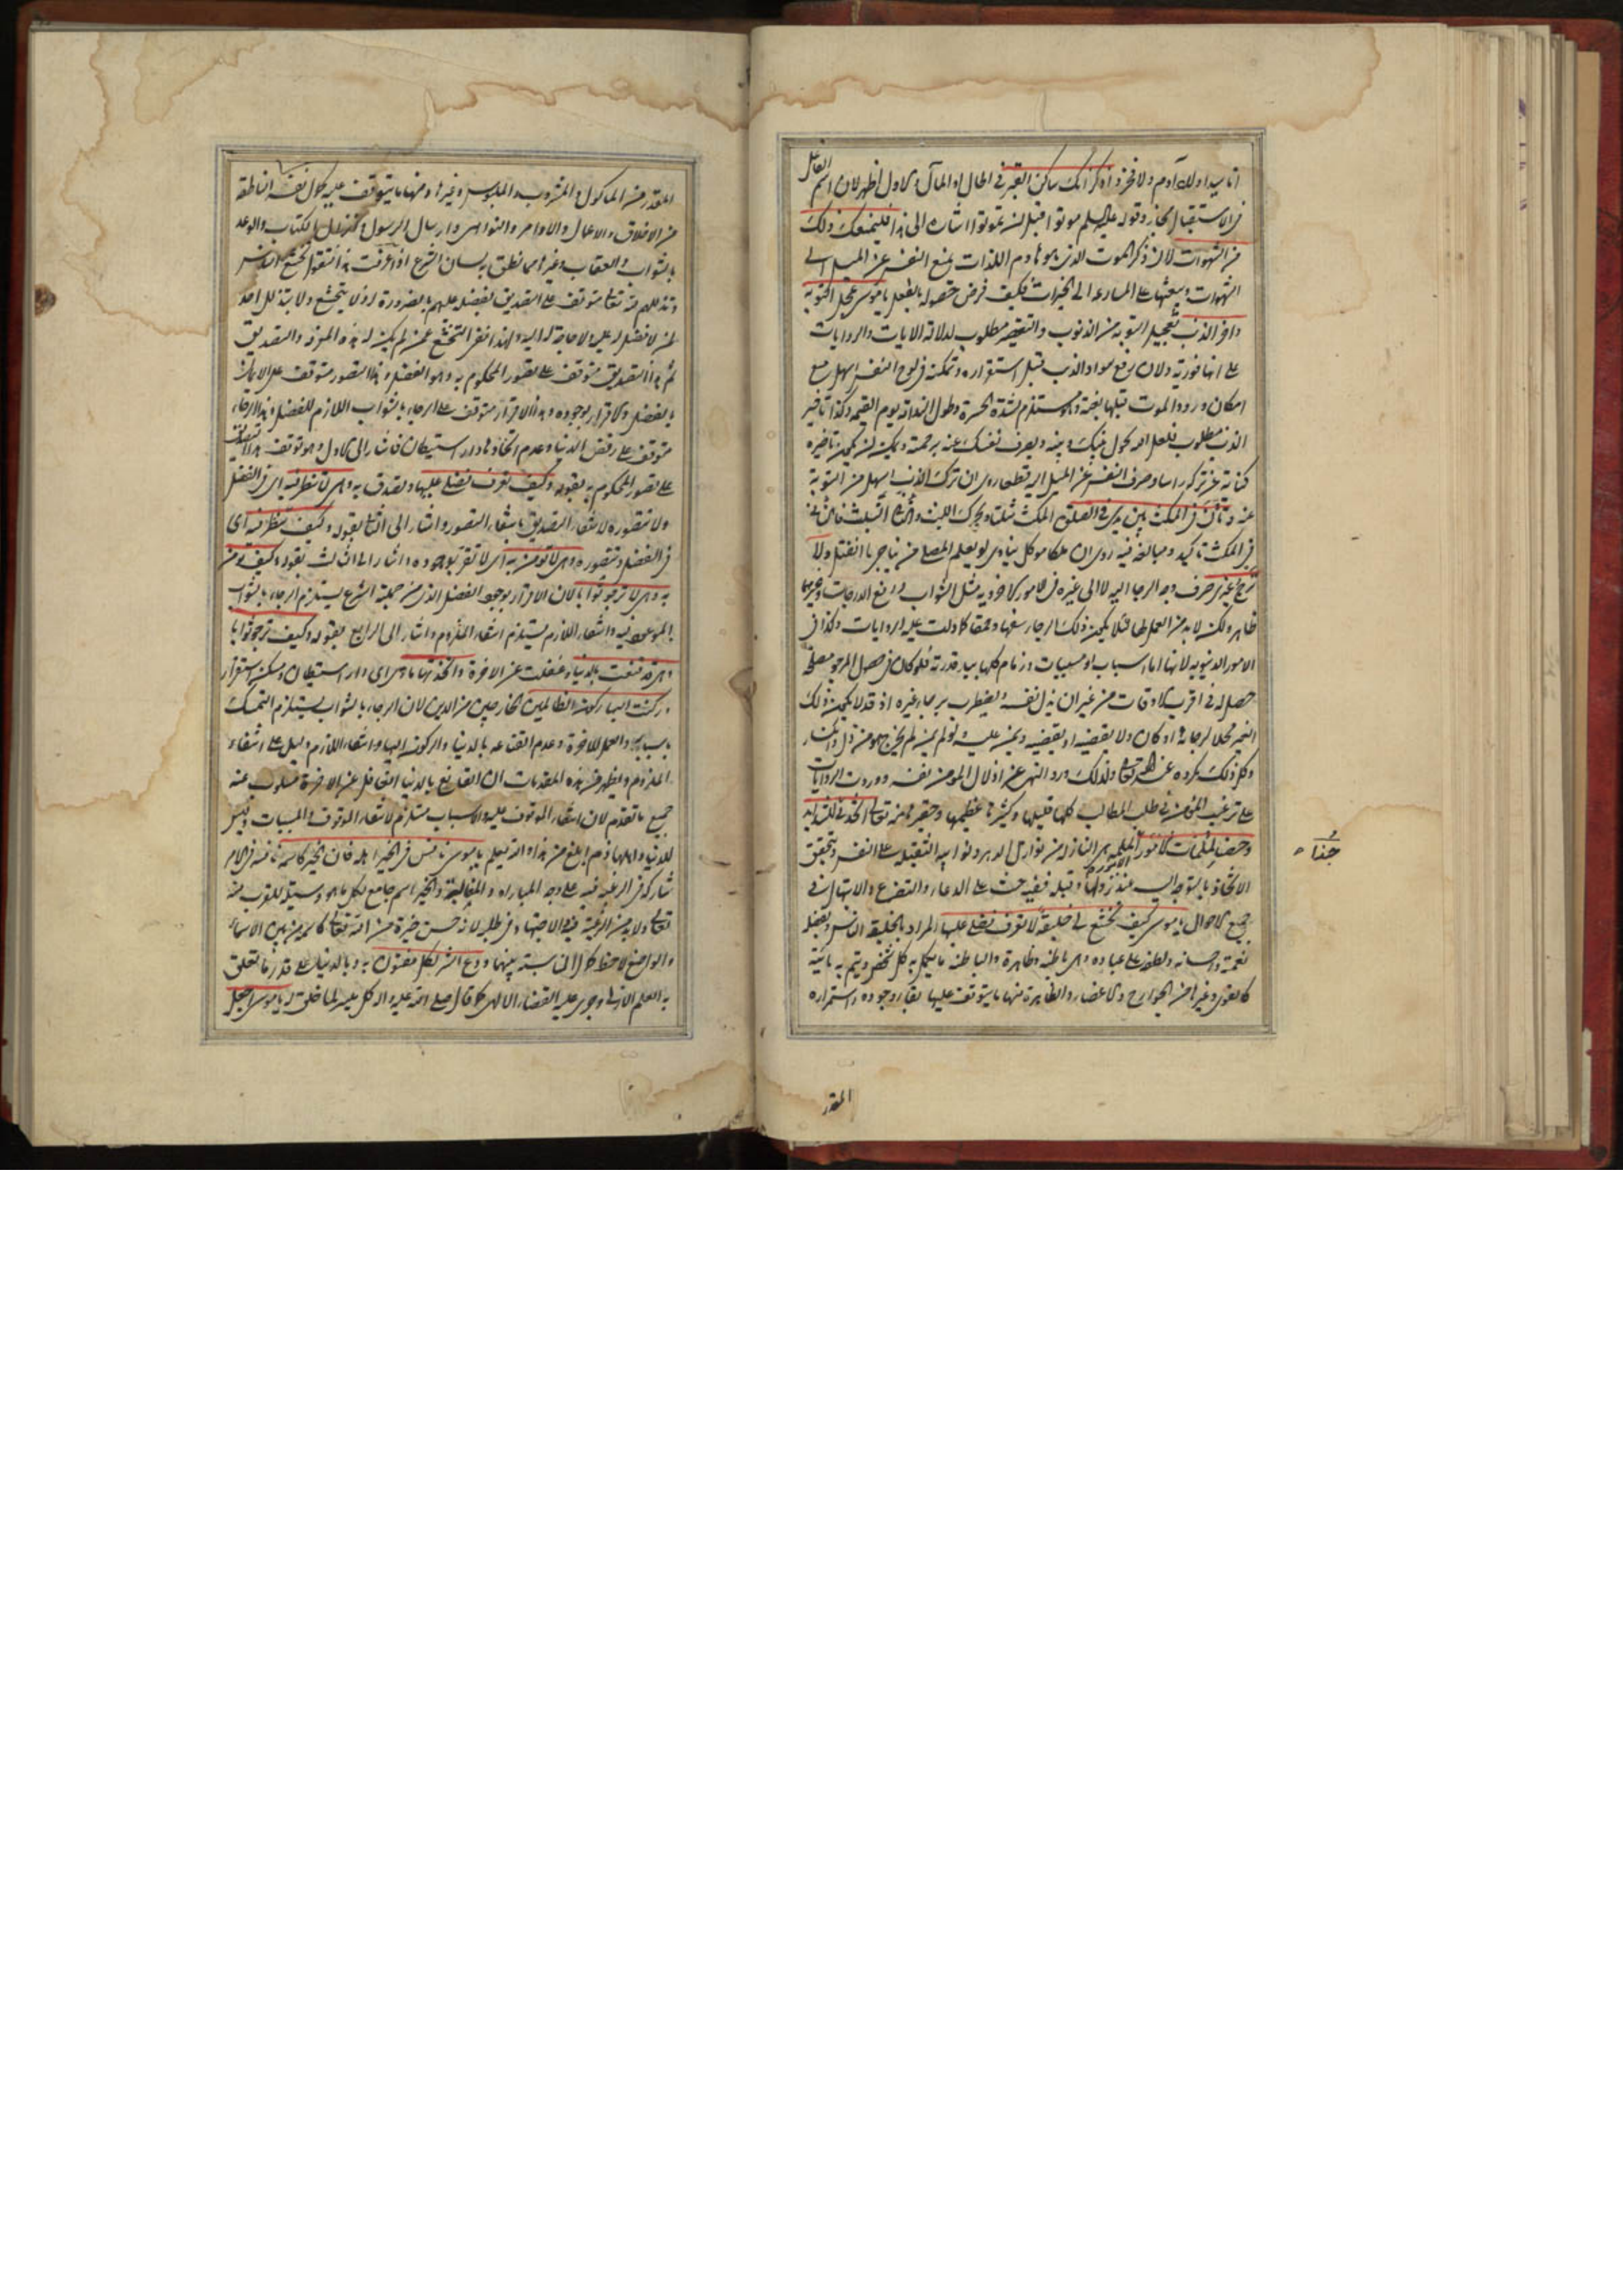 انا سيد اولاد آدم ولا فخر واذكر انك ساكن القبر في الحال او المآل والاول اظهر لان اسم الفاعل
في الاستقبال مجاز وقوله عليه السلم موتوا قبل ان تموتوا اشارة الى هذا فليمنعك ذلك
من الشهوات لان ذكر الموت الذي هو هادم اللذات يمنع النفس عن الميل الى
الشهوات ويبعثها على المسارعة الى الخيرات فكيف فرض حصوله بالفعل يا موسى عجل التوبة
واخر الذنب تعجيل التوبة من الذنوب والتقصير مطلوب لدلالة الايات والروايات
على انها فورية ولان رفع سواد الذنب قبل استقراره وتمكنه في لوح النفس اسهل مع
امكان ورود الموت قبلها بغتة وهو مستلزم لشدة الحسرة وطول الندامة يوم القيمة وكذا تاخير
الذنب مطلوب فلعل الله يحول بينك وبينه ويصرف نفسك عنه برحمته ويمكن ان يكون تاخيره
كناية عن تركه راسا وصرف النفس عن الميل اليه قطعا روى ان ترك الذنب اسهل من التوبة
عنه وتأن في المكث بين يدي في الصلوة المكث مثلثا ويحرك اللبث والتأني التلبث فالتأني
في المكث تاكيد ومبالغة فيه روى ان ملكا موكل ينادي لو يعلم المصلي من يناجي ما انفتل ولا
ترج غيري صرف وجه الرجا اليه لا الى غيره في الامور الاخروية مثل الثواب ورفع الدرجات وغيرها
ظاهر ولكن لابد من العمل لها لئلا يكون ذلك الرجاء سفها وحمقا كما دلت عليه الروايات وكذا في
الامور الدنيوية لانها اما اسباب او مسببات وزمام كلها بيد قدرته فلو كان في حصول المرجو مصلحة
حصل له في اقرب الاوقات من غير ان يذل نفسه ويضطرب برجاء غيره اذ قد لا يكون ذلك
الغير محلا لرجائه او كان ولا يقضيه او يقضيه ويمن عليه ولو لم يمن لم يخرج هو من ذل وانكسار
وكل ذلك مكروه عند الله تعالى ولذلك ورد النهى عن اذلال المومن نفسه ووردت الروايات
على ترغيب المؤمن في طلب المطالب كلها قليلها وكثيرها عظيمها وحقيرها منه تعالى اتخذني للشدايد
وحصنا لملمات الامور الملمة هى النازلة من نوازل الدهر ونوايبه الثقيلة على النفس ويتحقق
الاتخاذ بالتوجه اليه عند نزولها وقبله ففيه حث على الدعاء والتضرع والابتهال في
جميع الاحوال يا موسى كيف تخشع لي خليقة لا تعرف فضلى عليها المراد بالخليقة الناس وبفضله
نعمته واحسانه ولطفه على عباده وهى باطنة وظاهرة والباطنة ما يكمل به كل شخص ويتم به بنيته
كالقوى وغيرها من الجوارح والاعضاء والظاهرة منها ما يتوقف عليها بقاء وجوده واستمراره
جنة
المقدر
المقدر من الماكول والمشروب والملبوس وغيرها ومنها ما يتوقف عليه كمال نفسه الناطقة
من الاخلاق والاعمال والاوامر والنواهى وارسال الرسول وتنزيل الكتاب والوعد
بالثواب والعقاب وغيرها مما نطق به لسان الشرع اذا عرفت هذا فنقول تخشع الناس
وتذللهم منه تعالى متوقف على التصديق بفضله عليهم بالضرورة اذ لا يتخشع ولا يتذلل احد
لمن لا فضل له عليه ولا حاجة له اليه ولهذا نفى التخشع عمن لم يكن له هذه المعرفة والتصديق
ثم هذا التصديق متوقف على تصور المحكوم به وهو الفضل وهذا التصور متوقف على الايمان
بالفضل والاقرار بوجوده وهذا الاقرار متوقف على الرجاء بالثواب اللازم للفضل وهذا الرجاء
متوقف على رفض الدنيا وعدم اتخاذها دار استيطان فاشار الى الاول وهو توقف هذا التصديق
على تصور المحكوم به بقوله وكيف تعرف فضلى عليها وتصدق به وهى لا تنظر فيه اى في الفضل
ولا تتصوره لانتفاء التصديق بانتفاء التصور واشار الى الثانى بقوله وكيف تنظر فيه اى
في الفضل وتتصوره وهى لا تؤمن به اى لا تقر بوجوده واشار الى الثالث بقوله وكيف تؤمن
به وهى لا ترجو ثوابا لان الاقرار بوجود الفضل الذى من جملته الشرع يستلزم الرجاء بالثواب
الموعود فيه وانتفاء اللازم يستلزم انتفاء الملزوم واشار الى الرابع بقوله وكيف ترجو ثوابا
وهى قد قنعت بالدنيا وغفلت عن الاخرة واتخذتها ماوى اى دار استيطان ومسكن استقرار
وركنت اليها ركون الظالمين الخارجين من الدين لان الرجاء بالثواب يستلزم التمسك
باسبابه والعمل للاخرة وعدم القناعة بالدنيا والركون اليها وانتفاء اللازم دليل على انتفاء
الملزوم ويظهر من هذه المقدمات ان القانع بالدنيا الغافل عن الاخرة مسلوب عنه
جميع ما تقدم لان انتفاء الموقوف عليه والاسباب مستلزم لانتفاء الموقوف والمسببات وليس
للدنيا واهلها ذم ابلغ من هذا والله يعلم يا موسى نافس في الخير اهله فان الخير كاسمه نافسه في الامر
شاركه في الرغبة فيه على وجه المباراة والمغالبة والخير اسم جامع لكل ما هو وسيلة للقرب منه
تعالى ولابد من الرغبة فيه والاجتهاد في طلبه لانه حسن خيرة من الله تعالى كاسمه من بين الاسماء
والواضع لاحظ كمال المناسبة بينهما ودع الشر لكل مفتون به وبالدنيا على قدر ما تعلق
به العلم الازلى وجرى عليه القضاء الالهى كما قال صلى الله عليه واله كل ميسر لما خلق له يا موسى اجعل